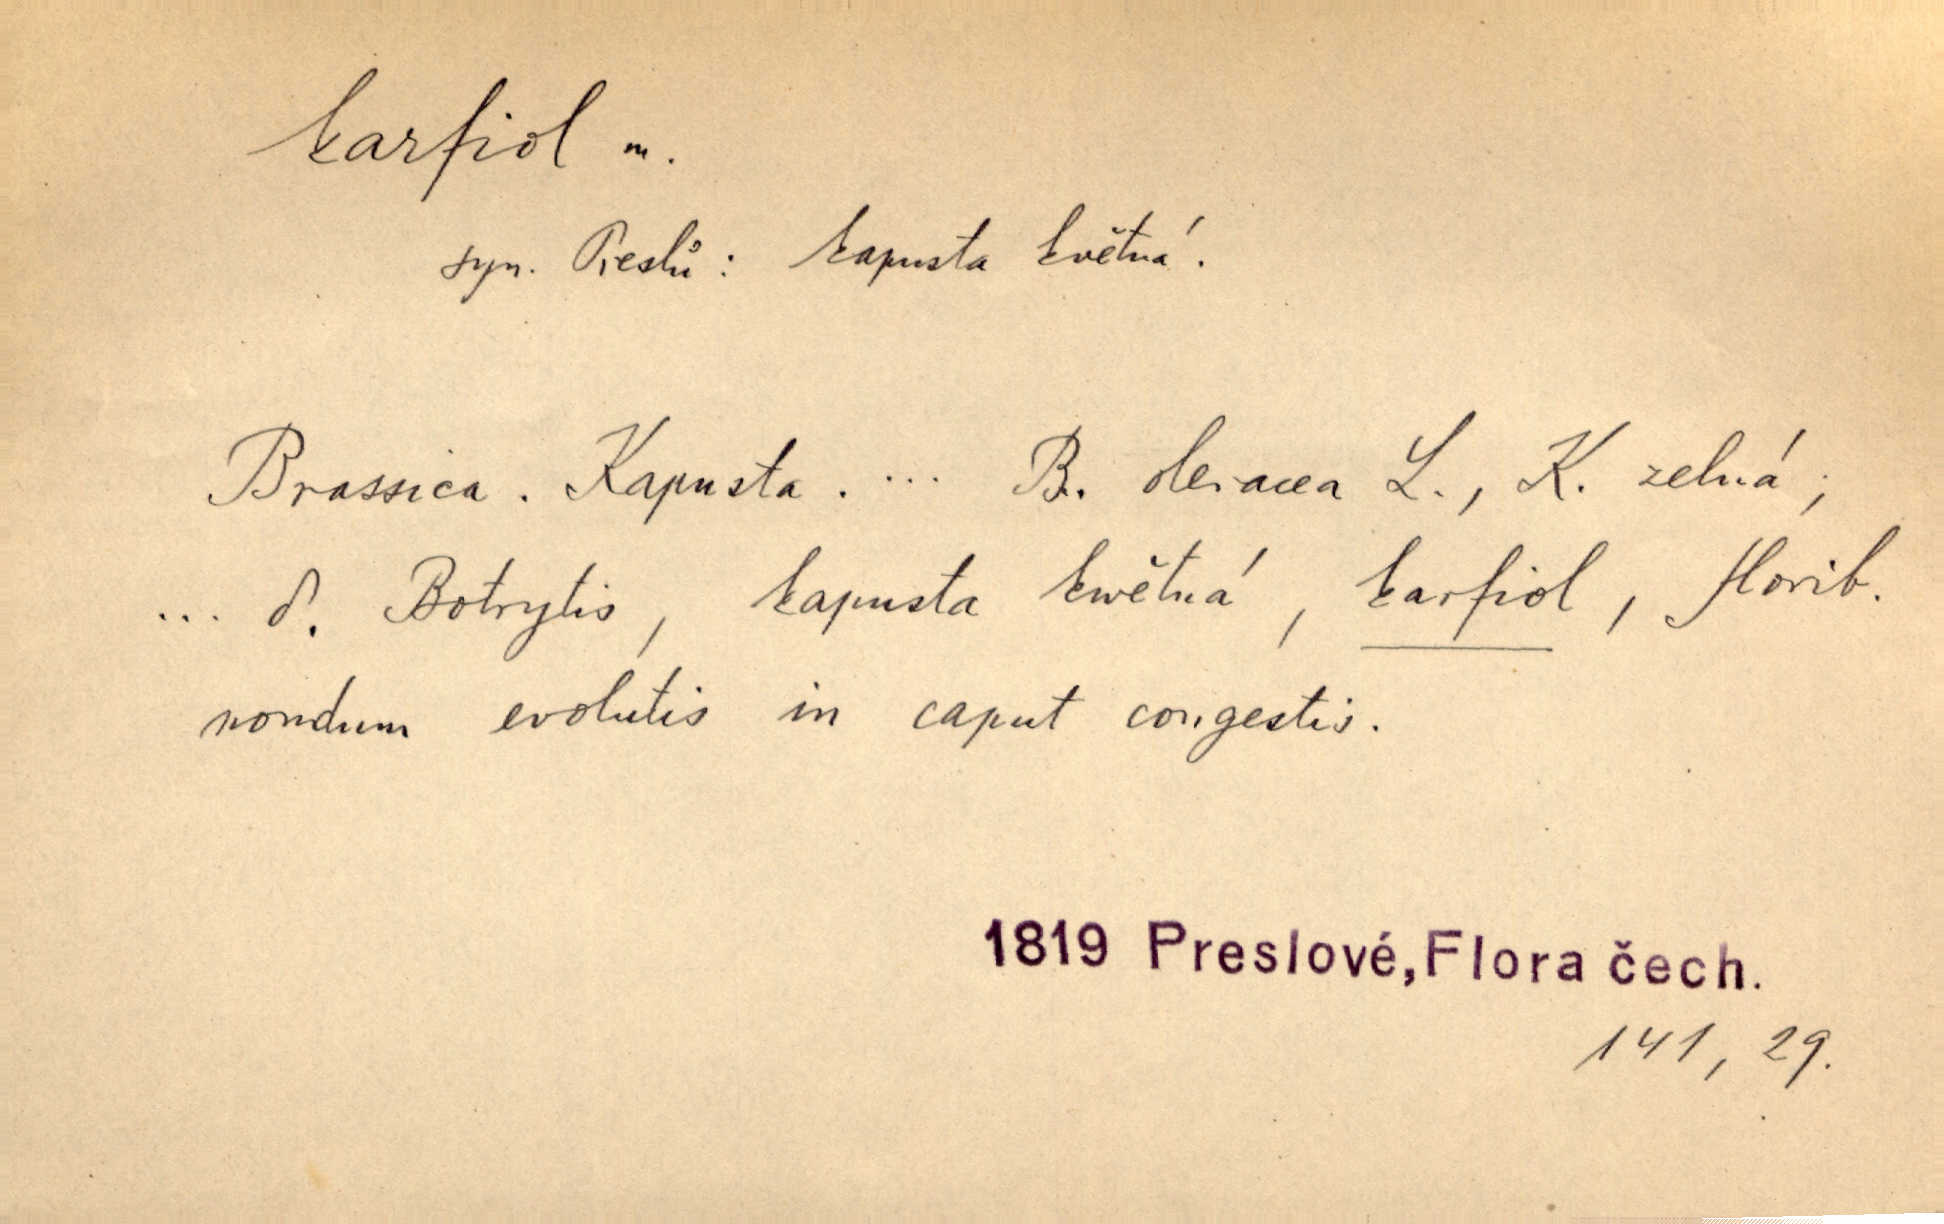 karfiol m.
syn. Preslů: kapusta květná.
Brassica. Kapusta. ... B. oleracea L., K. zelná;
... δ. Botrytis, kapusta kwětná, karfiol, florib.
nondum evolutis in caput congestis.
1819 Preslové, Flora čech.
141, 29.